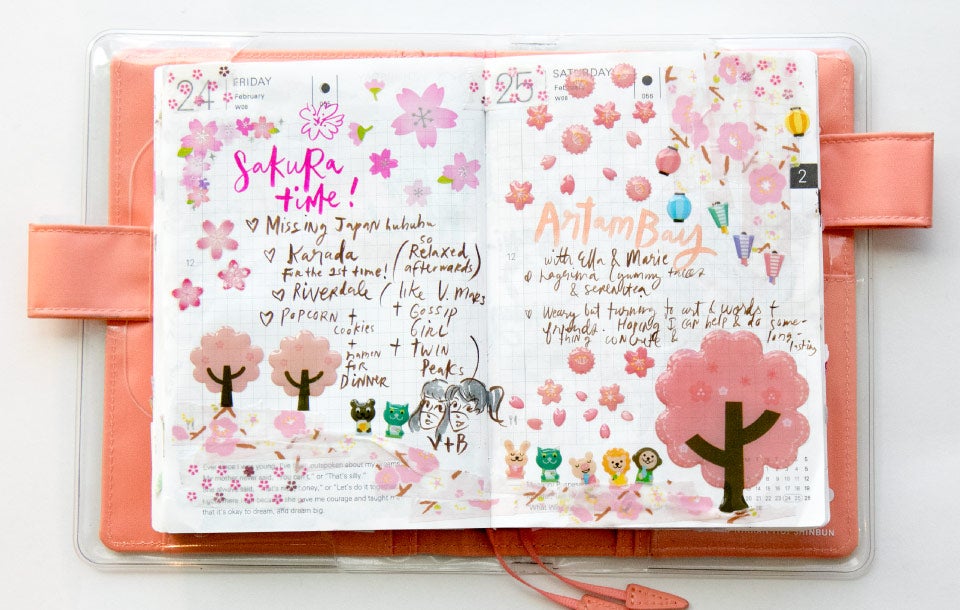 24 FRIDAY
February
W08
SAKURA
time!
♡ Missing Japan huhuhu
♡ Karada
For the 1st time!
(so
Relaxed
afterwards)
♡ Riverdale (like V. Mars
♡ Popcorn +
cookies
+
Ramen
for
Dinner
+ Gossip
Girl
+ Twin
Peaks)
V+B
25 SATURDAY
February
W08
056
2
12
12
ArtamBay
with Ella & Marie
yummy
& serenitea
Weary but turning to art & words +
friends. Hoping I can help & do some-
thing concrete & long-
lasting
outspoken about my
mother never said, "You can't," or "That's silly."
money," or "Let's do it together
because she gave me courage and taught
that it's okay to dream, and dream big.
SHINBUN